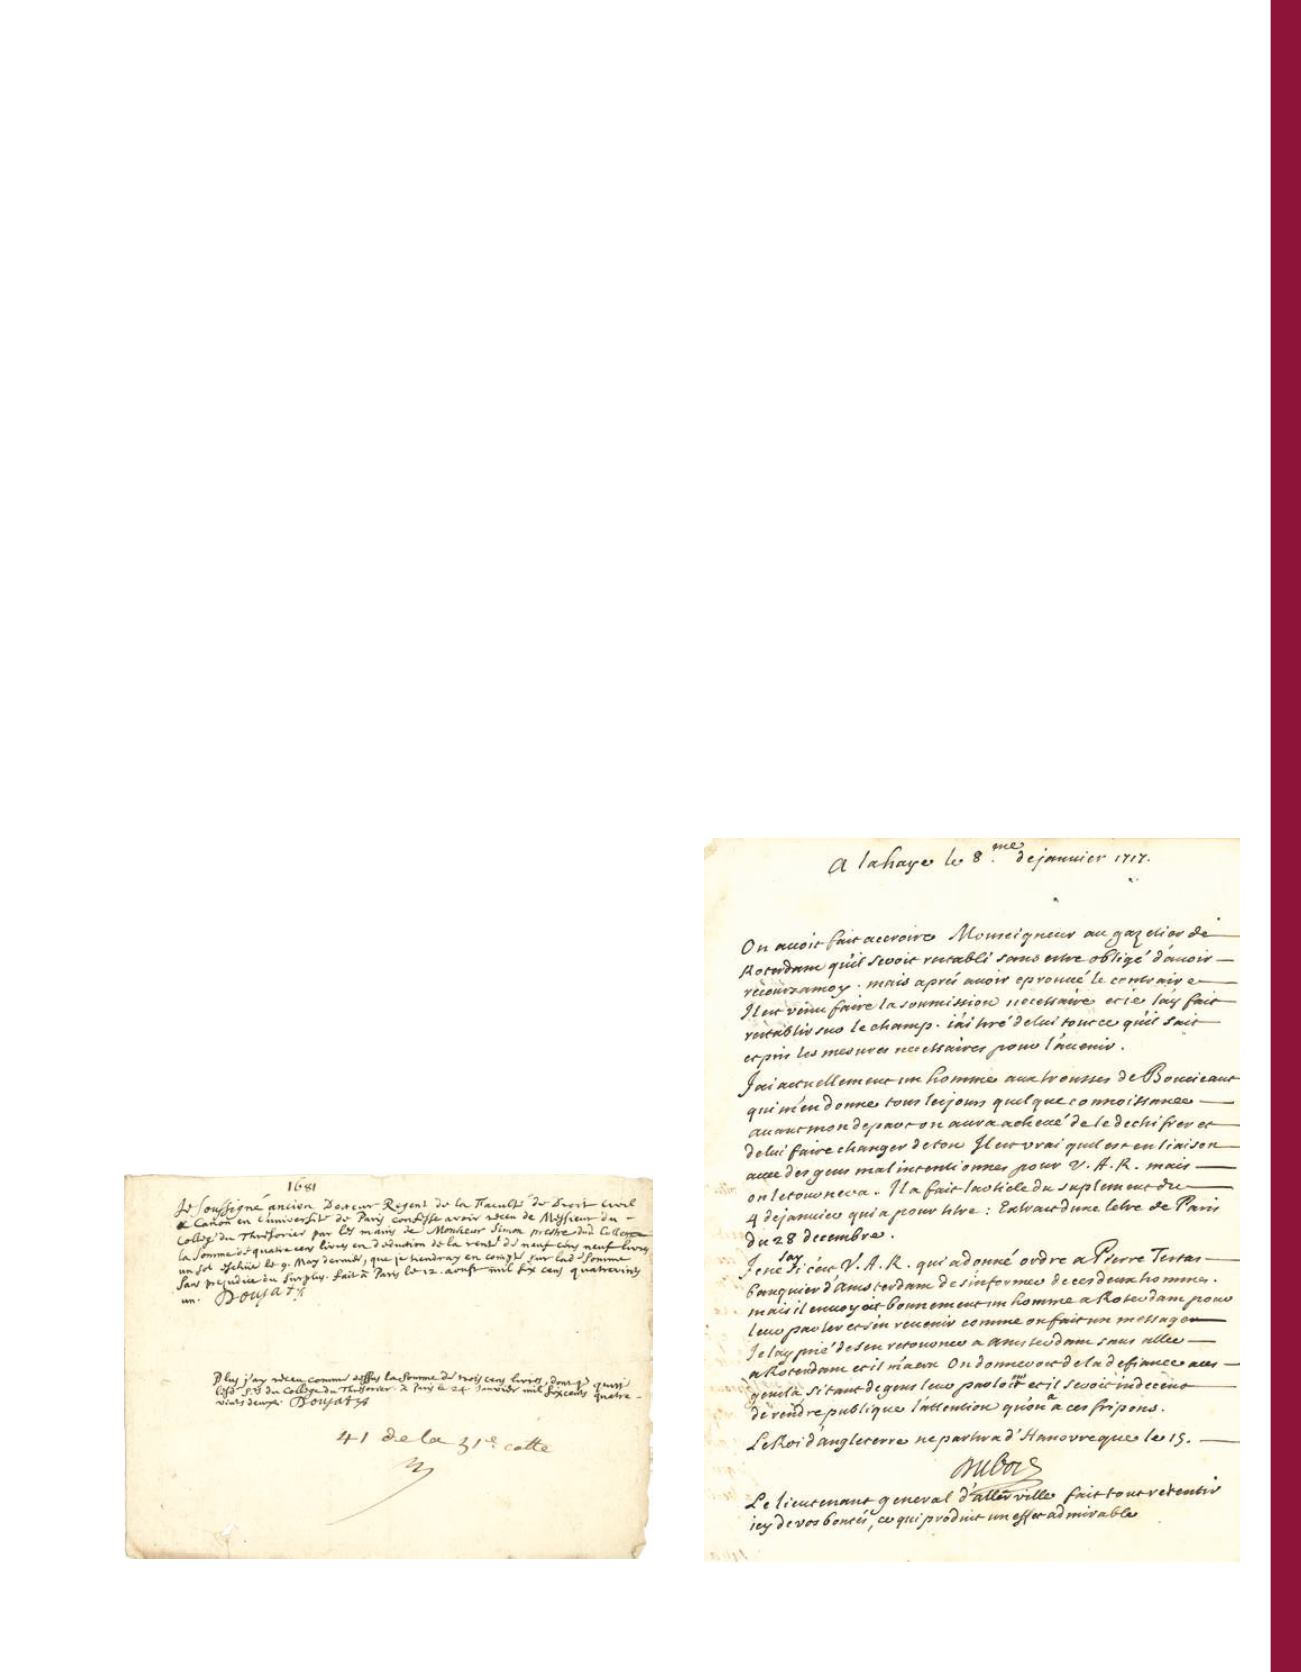 1681
Je soussigné ancien Docteur Regent de la Faculté de Droit Civil
& Canon en l'université de Paris confesse avoir receu de Messieurs du
College du Thresorier par les mains de Monsieur Simon prestre dud. College
la somme de quatre cens livres en deduction de la rente de neuf cens neuf livres
un sol escheüe le 9. May dernier, que je tiendray en compte sur lad. somme
sans prejudice du surplus. fait à Paris le 12. aoust mil six cens quatrevins
un. Doujat
Plus j'ay receu comme dessus la somme de trois cens livres, dont je quitte
lesd. Srs du College du Thresorier. à Paris le 24 Janvier mil six cens quatre-
vins deux. Doujat
41 de la 31e cotte
A lahaye le 8.me de janvier 1717.
On avoit fait accroire Monseigneur au gazetier de
Roterdam qu'il seroit restabli sans estre obligé d'avoir
recours a moy. mais aprés avoir eprouvé le contraire
Il est venu faire la soumission necessaire et ie l'ay fait
restablir sur le champ. i'ai tiré de lui tout ce qu'il sait
et pris les mesures necessaires pour l'avenir.
J'ai actuellement un homme aux trousses de
qui m'en donne tous les jours quelque connoissance
avant mon depart on aura achevé de le dechifrer et
de lui faire changer de ton Il est vrai qu'il est en liaison
avec des gens mal intentionnes pour V. A. R. mais
on le tournera. Il a fait l'article du suplement du
4 de janvier qui a pour titre : Extrait d'une letre de Paris
du 28 decembre.
Je ne say si c'est V. A. R. qui a donné ordre a Pierre Testas
banquier d'Amsterdam de s'informer de ces deux hommes.
mais il envoyoit bonnement un homme a Roterdam pour
leur parler et s'en revenir comme on fait un message
Je l'ay prié de s'en retourner a amsterdam sans aller
a Roterdam et il m'a cru On donneroit de la defiance a ces
gens là si tant de gens leur parloient et il seroit indecent
de rendre publique l'attention qu'on a a ces fripons.
Le Roi d'angleterre ne partira d'Hanovre que le 15.
Dubois
Le lieutenant general d'allerville fait tout retentir
icy de vos bontés, ce qui produit un effet admirable